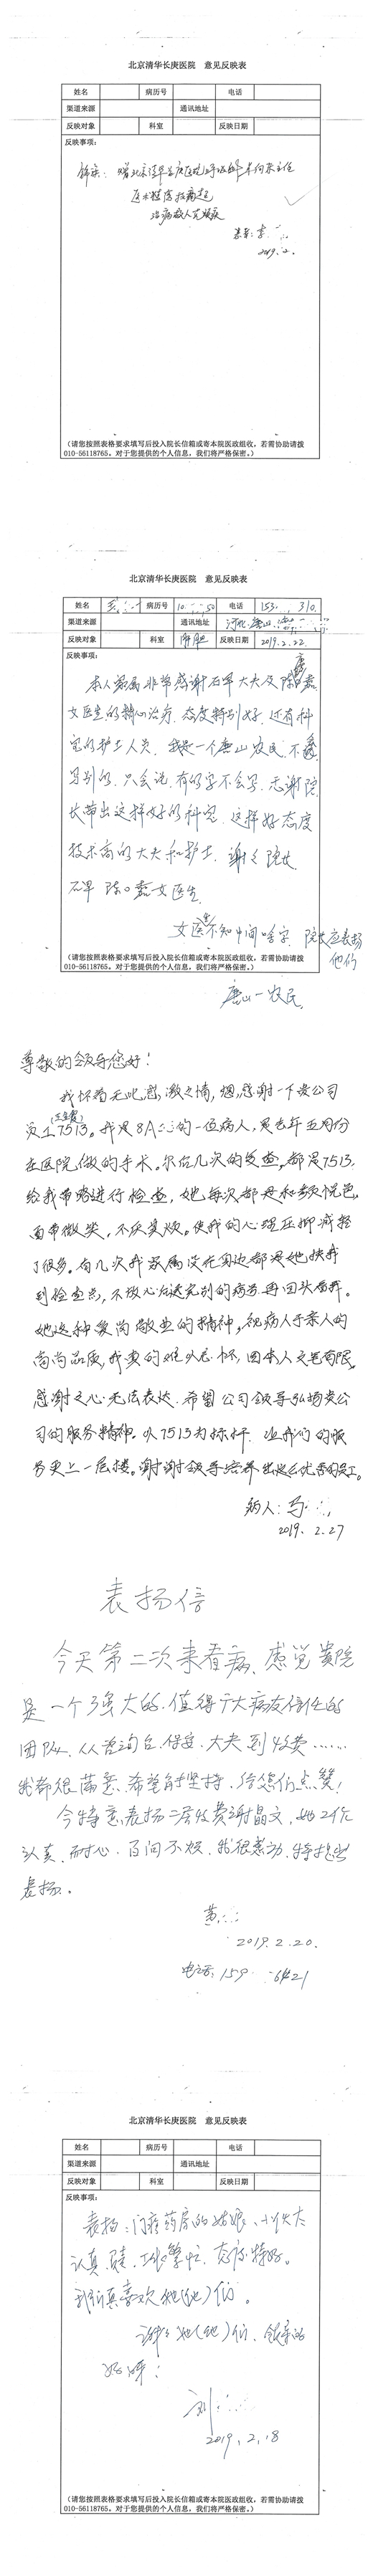 北京清华长庚医院 意见反映表
姓名 病历号 电话
渠道来源 通讯地址
反映对象 科室 反映日期
反映事项：
锦旗：赠北京清华长庚医院
医术精湛
治病救人
患者：李
2019.2.
（请您按照表格要求填写后投入院长信箱或寄本院医政组收，若需协助请拨
010-56118765。对于您提供的个人信息，我们将严格保密。）
北京清华长庚医院 意见反映表
姓名 病历号 10 50 电话 153 310
渠道来源 通讯地址 河北 唐山
反映对象 科室 肝胆 反映日期 2019.2.22
反映事项：
本人家属非常感谢石军大夫及陈 嘉
女医生的精心治疗，态度特别好，还有科
室的护士人员，我是一个唐山农民，不会
写别的，只会说，有的字不会写，感谢院
长带出这样好的科室，这样好态度
技术高的大夫和护士，谢谢院长
石军 陈口嘉女医生
女医生不知中间啥字 院长应表扬
他们
（请您按照表格要求填写后投入院长信箱或寄本院医政组收，若需协助请拨
010-56118765。对于您提供的个人信息，我们将严格保密。）
唐山一农民
尊敬的领导您好！
我怀着无比感激之情，感谢一下贵公司
员工7513。我是8A 的一位病人，是去年五月份
在医院做的手术。尔后几次的复查，都是7513
给我带路进行检查，她每次都是和颜悦色，
面带微笑，不厌其烦。使我的心理压抑减轻
了很多。有几次我家属没在身边都是她扶我
到检查点，不放心后送完别的病号再回头看我。
她这种爱岗敬业的精神。视病人于亲人的
高尚品质，我真的难以忘怀，因本人文笔有限。
感谢之心无法表达。希望公司领导弘扬贵公
司的服务精神。以7513为标杆，让我们的服
务更上一层楼。谢谢领导培养出这么优秀的员工。
病人：马
2019.2.27
表扬信
今天第二次来看病，感觉贵院
是一个强大的，值得广大病友信任的
团队。从咨询台、保安、大夫到收费……
我都很满意，希望能坚持，给您们点赞！
今特意表扬二层收费谢晶文，她工作
认真、耐心、百问不烦，我很感动，特提出
表扬。
黄
2019.2.20.
电话：159 6421
北京清华长庚医院 意见反映表
姓名 病历号 电话
渠道来源 通讯地址
反映对象 科室 反映日期
反映事项：
表扬：门诊药房的姑娘、小伙太
认真、负责，工作繁忙，态度特好。
我们真喜欢她（他）们。
谢谢她（他）们，领导的
好呀！
刘
2019.2.18
（请您按照表格要求填写后投入院长信箱或寄本院医政组收，若需协助请拨
010-56118765。对于您提供的个人信息，我们将严格保密。）